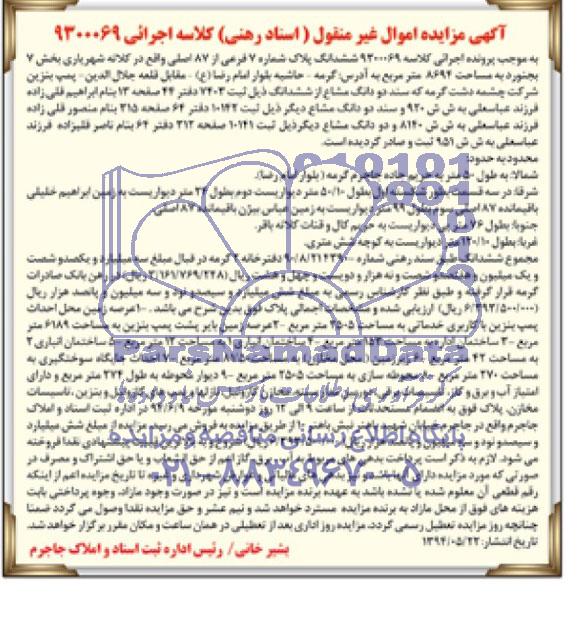 آگهی مزایده اموال غیر منقول ( اسناد رهنی) کلاسه اجرائی ۹۳۰۰۰۶۹
به موجب پرونده اجرائی کلاسه ۹۳۰۰۰۶۹ ششدانگ پلاک شماره ۷ فرعی از ۸۷ اصلی واقع در کلاته شهریاری بخش ۷
بجنورد به مساحت ۸۶۹۴ متر مربع به آدرس: گرمه - حاشیه بلوار امام رضا (ع) - مقابل قلعه جلال الدین - پمپ بنزین
شرکت چشمه دشت گرمه که سند دو دانگ مشاع از ششدانگ ذیل ثبت ۷۴۰۳ دفتر ۴۴ صفحه ۱۳ بنام ابراهیم قلی زاده
فرزند عباسعلی به ش ش ۹۲۰ و سند دو دانگ مشاع دیگر ذیل ثبت ۱۰۱۴۲ دفتر ۶۴ صفحه ۳۱۵ بنام منصور قلی زاده
فرزند عباسعلی به ش ش ۸۱۴۰ و دو دانگ مشاع دیگر ذیل ثبت ۱۰۱۴۱ صفحه ۳۱۲ دفتر ۶۴ بنام ناصر قلیزاده فرزند
عباسعلی به ش ش ۹۵۱ ثبت و صادر گردیده است.
محدود به حدود:
شمالا: به طول ۵۰ متر به حریم جاده جاجرم گرمه (بلوار امام رضا).
شرقا: در سه قسمت بطور شکسته اول بطول ۵۰/۱۰ متر دیواریست دوم بطول ۲۴ متر دیواریست به زمین ابراهیم خلیلی
باقیمانده ۸۷ اصلی سوم بطول ۹۹ متر دیواریست به زمین عباس بیژن باقیمانده ۸۷ اصلی.
جنوبا: بطول ۷۶ متر دیواریست به حریم کال و قنات کلاته باقر.
غربا: بطول ۱۲۰/۱۰ متر دیواریست به کوچه شش متری.
مجموع ششدانگ طبق سند رهنی شماره دفترخانه ۲ گرمه در قبال مبلغ سه میلیارد و یکصدو شصت
و یک میلیون و هفتصد و شصت و نه هزار و دویست و چهل و هشت ریال (۳/۱۶۱/۷۶۹/۲۴۸ ریال) در رهن بانک صادرات
گرمه قرار گرفته و طبق نظر کارشناس رسمی به مبلغ شش میلیارد و سیصدو نود و سه میلیون و پانصد هزار ریال
(۶/۳۹۳/۵۰۰/۰۰۰ ریال) ارزیابی شده و مشخصات اجمالی پلاک فوق بدین شرح می باشد. ۱- عرصه زمین محل احداث
پمپ بنزین با کاربری خدماتی به مساحت ۲۵۰۵ متر مربع ۲- عرصه زمین بایر پشت پمپ بنزین به مساحت ۶۱۸۹ متر
مربع ۳- ساختمان اداره به مساحت متر مربع ۴- ساختمان انباری ۱ به مساحت ۱۲ متر مربع ۵- ساختمان انباری ۲
به مساحت ۴۲ متر مربع جایگاه سوختگیری به
مساحت ۲۷۰ متر مربع ۸- محوطه سازی به مساحت ۲۵۰۵ متر مربع ۹- دیوار محوطه به طول ۲۷۴ متر مربع و دارای
امتیاز آب و برق و گاز بنزین، تاسیسات
مخازن. پلاک فوق به انضمام مستحدثات از ساعت ۹ الی ۱۲ روز دوشنبه مورخه ۹۴/۶/۹ در اداره ثبت اسناد و املاک
جاجرم واقع در جاجرم خیابان از طریق مزایده به فروش می رسد. مزایده از مبلغ شش میلیارد
و سیصدو نود و سه میلیون و پانصد هزار ریال شروع نقدا فروخته
می شود. لازم به ذکر است پرداخت بدهی های و حق اشتراک و مصرف در
صورتی که مورد مزایده دارای تا تاریخ مزایده اعم از اینکه
رقم قطعی آن معلوم شده یا نشده باشد به عهده برنده مزایده است و نیز در صورت وجود مازاد، وجوه پرداختی بابت
هزینه های فوق از محل مازاد به برنده مزایده مسترد خواهد شد و نیم عشر و حق مزایده نقدا وصول می گردد. ضمنا
چنانچه روز مزایده تعطیل رسمی گردد، مزایده روز اداری بعد از تعطیلی در همان ساعت و مکان مقرر برگزار خواهد شد.
تاریخ انتشار: ۱۳۹۴/۰۵/۲۲
بشیر خانی/ رئیس اداره ثبت اسناد و املاک جاجرم
ParsNamadData
پایگاه اطلاع رسانی مناقصه و مزایده
۰۲۱-۸۸۳۴۹۶۷۰-۵